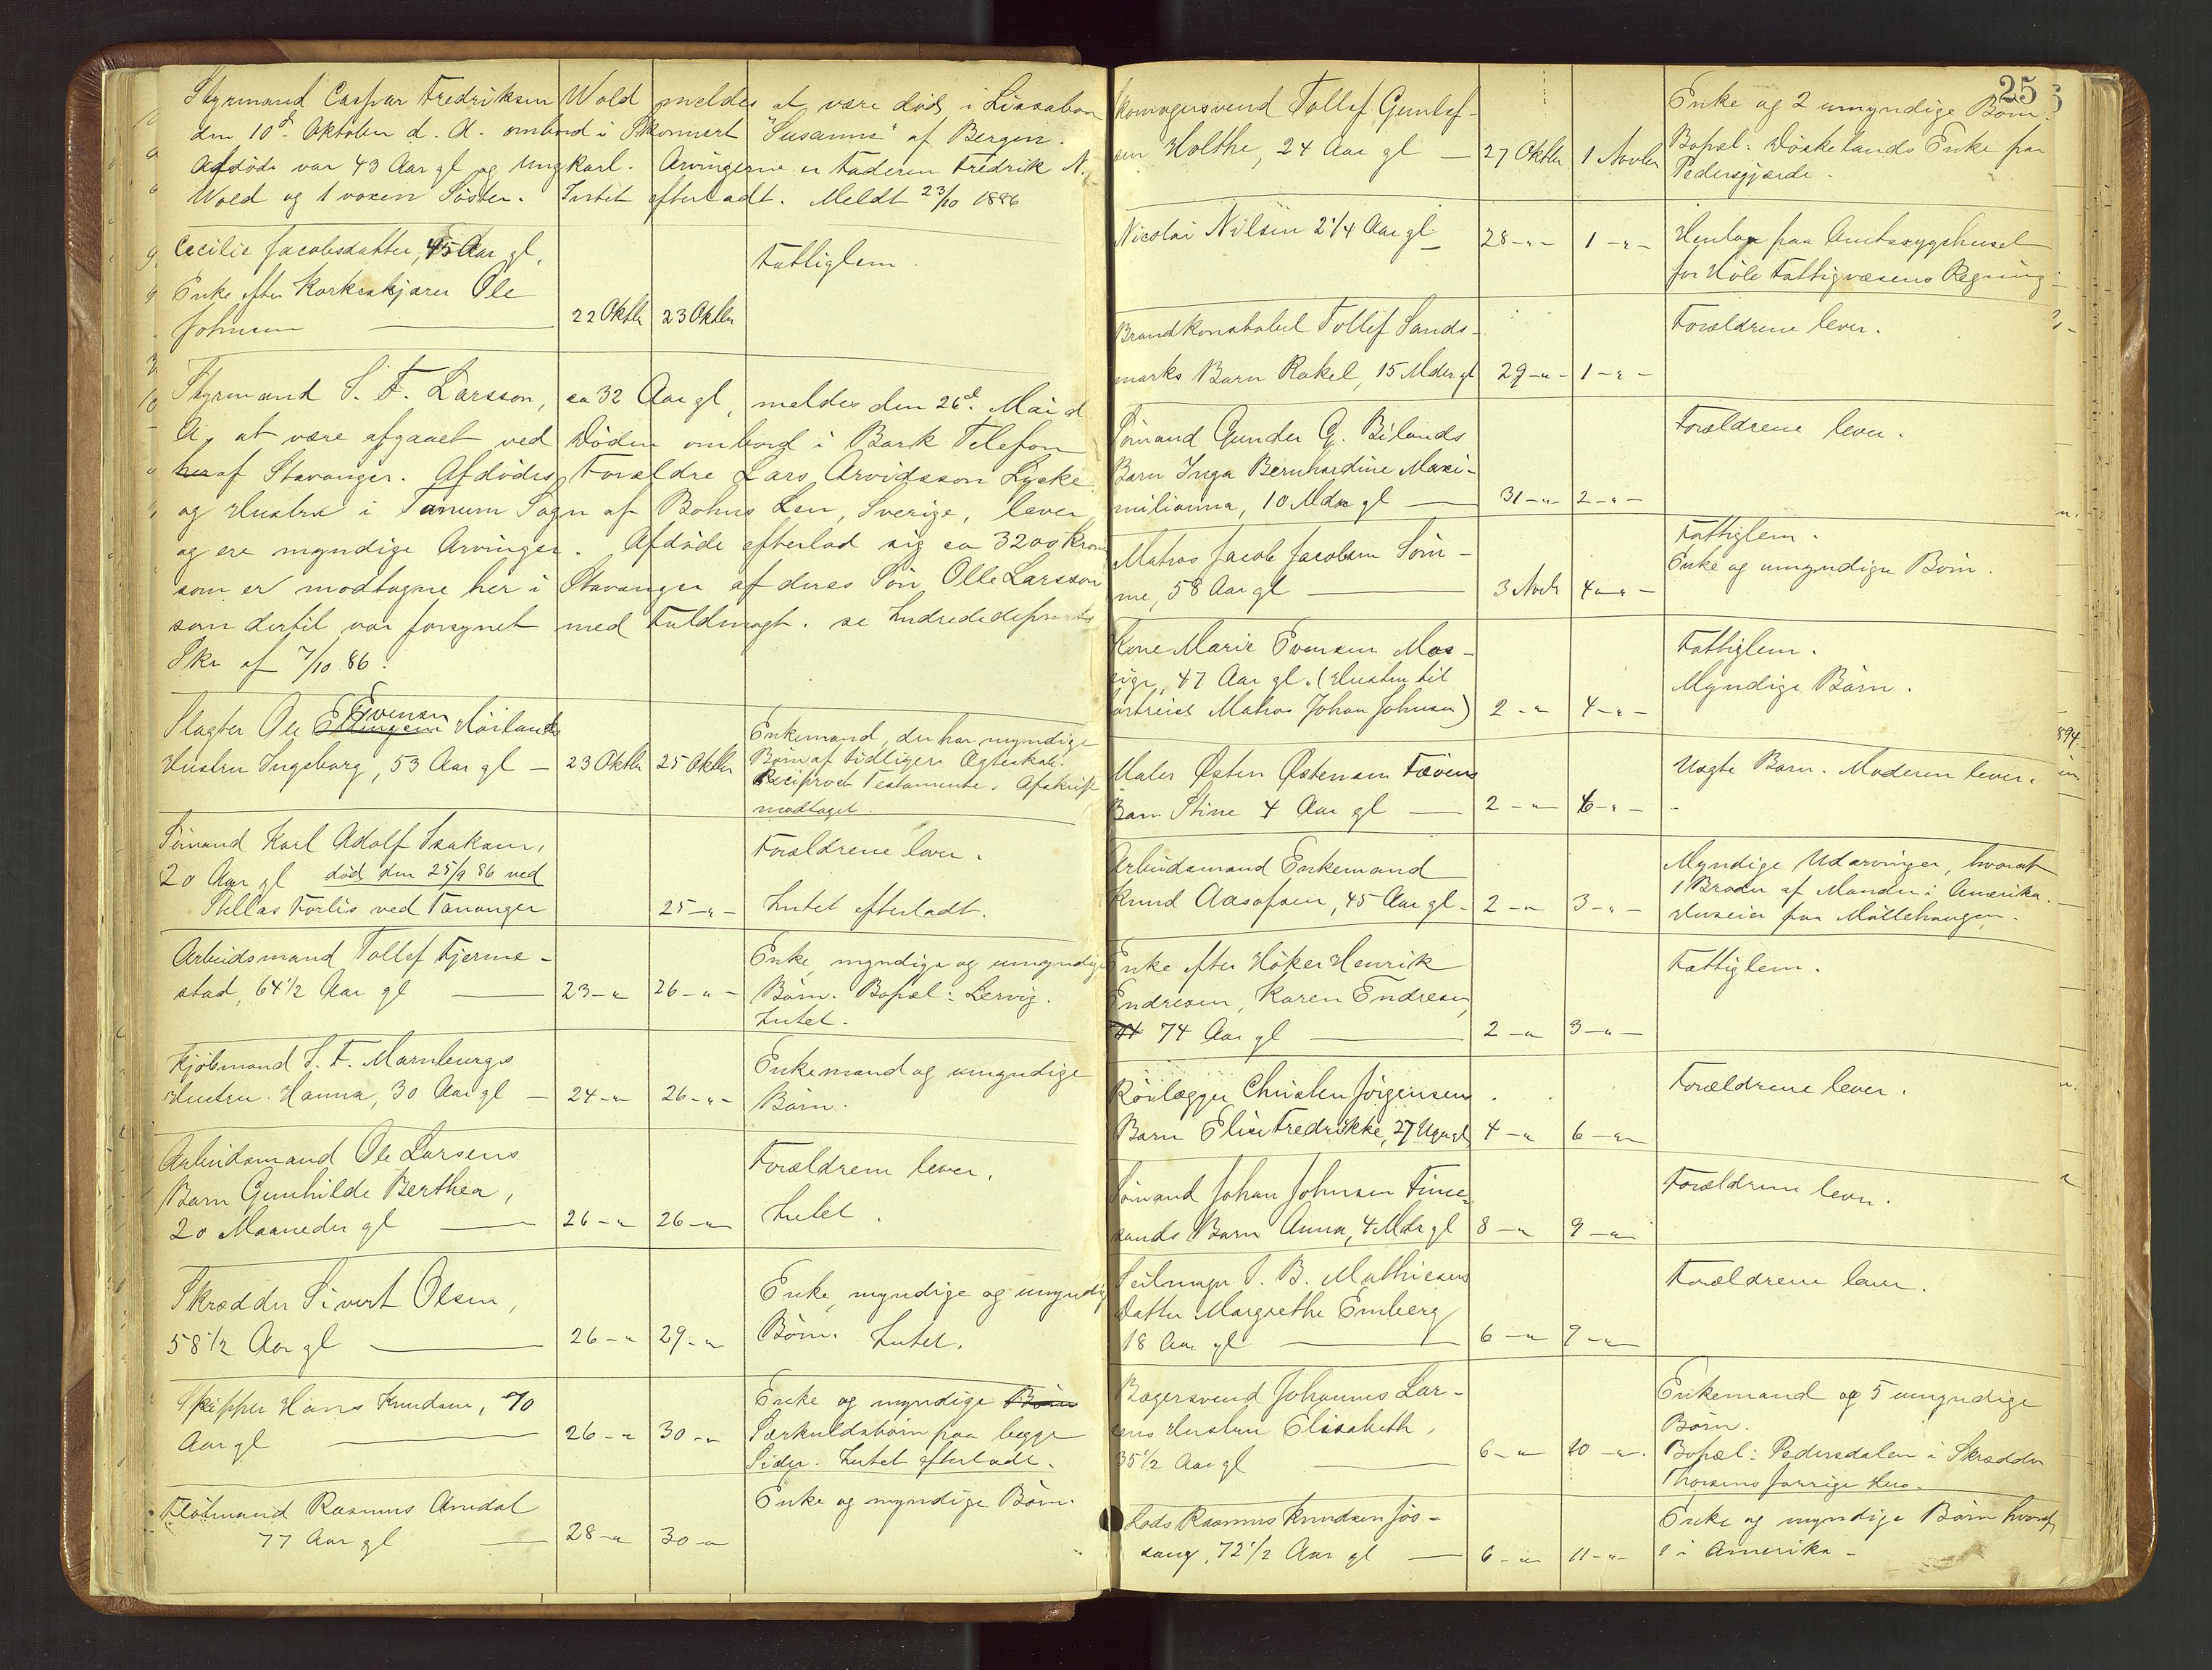 Styrmand Caspar Fredriksen Wold meldes at være död i Lissabon
den 10d. Oktober d. A. ombord i Skonnert "Susanne" af Bergen.
Afdöde var 43 Aar gl og Ungkarl. Arvingerne er Faderen Fredrik N.
Wold og 1 voxen Söster. Intet efterladt. Meldt 23/10 1886
Cecilie Jacobsdatter, 45 Aar gl,
Enke efter Korkeskjærer Ole
Johnsen — 22 Oktbr 23 Oktbr
Fattiglem.
Styrmand S. F. Larsson, ca 32 Aar gl, meldes den 26d. Mai d.
A, at være afgaaet ved Döden ombord i Bark Telefon
her af Stavanger. Afdödes Forældre Lars Arvidsson Lycke
og Hustru i Tanum Sogn af Bohus Len, Sverige, lever
og ere myndige Arvinger. Afdöde efterlod sig ca 3200 Kroner
som er modtagne her i Stavanger af deres Sön Olle Larsson
som dertil var forsynet med Fuldmagt. se Indrededeptets
Skr af 7/10 86.
Slagter Ole Ellingsen Evensen Höilands
Hustru Ingeborg, 53 Aar gl — 23 Oktbr 25 Oktbr
Enkemand, der har myndige
Börn af tidligere Ægteskab.
Reciprockt Testamente. Afskrift
modtaget.
Sömand Karl Adolf Isaksen,
20 Aar gl död den 25/9 86 ved
Stellas Forlis ved Tananger 25 - " -
Forældrene lever.
Intet efterladt.
Arbeidsmand Tollef Fjerme-
stad, 64 1/2 Aar gl — 23 - " 26 - " -
Enke, myndige og umyndige
Börn. Bopæl: Lervig.
Intet.
Kjöbmand S. F. Marnburgs
Hustru Hanna, 30 Aar gl — 24 - " 26 - " -
Enkemand og umyndige
Börn.
Arbeidsmand Ole Larsens
Barn Gunhilde Berthea,
20 Maaneder gl — 26 - " 26 - "
Forældrene lever.
Intet.
Skrædder Sivert Olsen,
58 1/2 Aar gl — 26 - " 29 - "
Enke, myndige og umyndige
Börn. Intet.
Skipper Hans Knudsen, 70
Aar gl — 26 - " 30 - "
Enke og myndige Börn
Særkuldsbörn paa begge
Sider. Intet efterladt.
Flötmand Rasmus Aredal
77 Aar gl — 28 - " 30 - "
Enke og myndige Börn.
25
Skomagersvend Tollef Gunlef-
sen Holthe, 24 Aar gl — 27 Oktbr 1 Novbr
Enke og 2 umyndige Börn.
Bopæl: Döskelands Enke paa
Pedersgjærde.
Nicolai Nilsen 2 1/4 Aar gl — 28 - " - 1 - " -
Henlaa paa Amtssygehuset
for Höle Fattigvæsens Regning
Brandkonstabel Tollef Sands-
marks Barn Rakel, 15 Mdr gl 29 - " - 1 - " -
Forældrene lever.
Sömand Gunder G. Bilands
Barn Inga Bernhardine Maxi-
milianna, 10 Mdr gl — 31 - " - 2 - " -
Forældrene lever.
Matros Jacob Jacobsen Söm-
me, 58 Aar gl — 3 Novbr 4 - " -
Fattiglem.
Enke og umyndige Börn.
Kone Marie Evensen Mos-
sige, 47 Aar gl. (Hustru til
bortreist Matros Johan Johnsen) 2 - " 4 - " -
Fattiglem.
Myndige Börn.
Maler Østen Østensen Tævens
Barn Stine 4 Aar gl — 2 - " 6 - " -
Uægte Barn. Moderen lever.
Arbeidsmand Enkemand
Knud Aasofsen, 45 Aar gl - 2 - " 3 - " -
Myndige Udarvinger, hvoraf
1 Broder af Manden i Amerika.
Huseier paa Möllehaugen.
Enke efter Höker Henrik
Endresen, Karen Endresen,
74 Aar gl — 2 - " 3 - " -
Fattiglem.
Rörlægger Christen Jörgensens
Barn Elise Fredrikke, 27 Uger gl 4 - " 6 - "
Forældrene lever.
Sömand Johan Johnsen Fine-
sands Barn Anna, 4 Mdr gl 8 - " 9 - "
Forældrene lever.
Seilmager P. B. Mathiesens
Datter Margrethe Emberg
18 Aar gl — 6 - " 9 - "
Forældrene lever.
Bagersvend Johannes Lar-
sens Hustru Elisabeth,
35 1/2 Aar gl — 6 - " 10 - ".
Enkemand og 5 umyndige
Börn.
Bopæl: Pedersdalen i Skrædder
Thorsens forrige Hus.
Lods Rasmus Knudsen Jös-
sang, 72 1/2 Aar gl — 6 - " 11 - " -
Enke og myndige Börn hvoraf
1 i Amerika -
894.